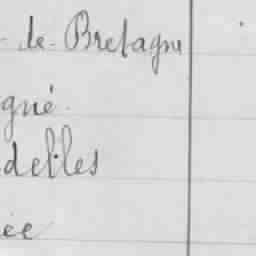 - de - Bretagne
gné.
delles
ée